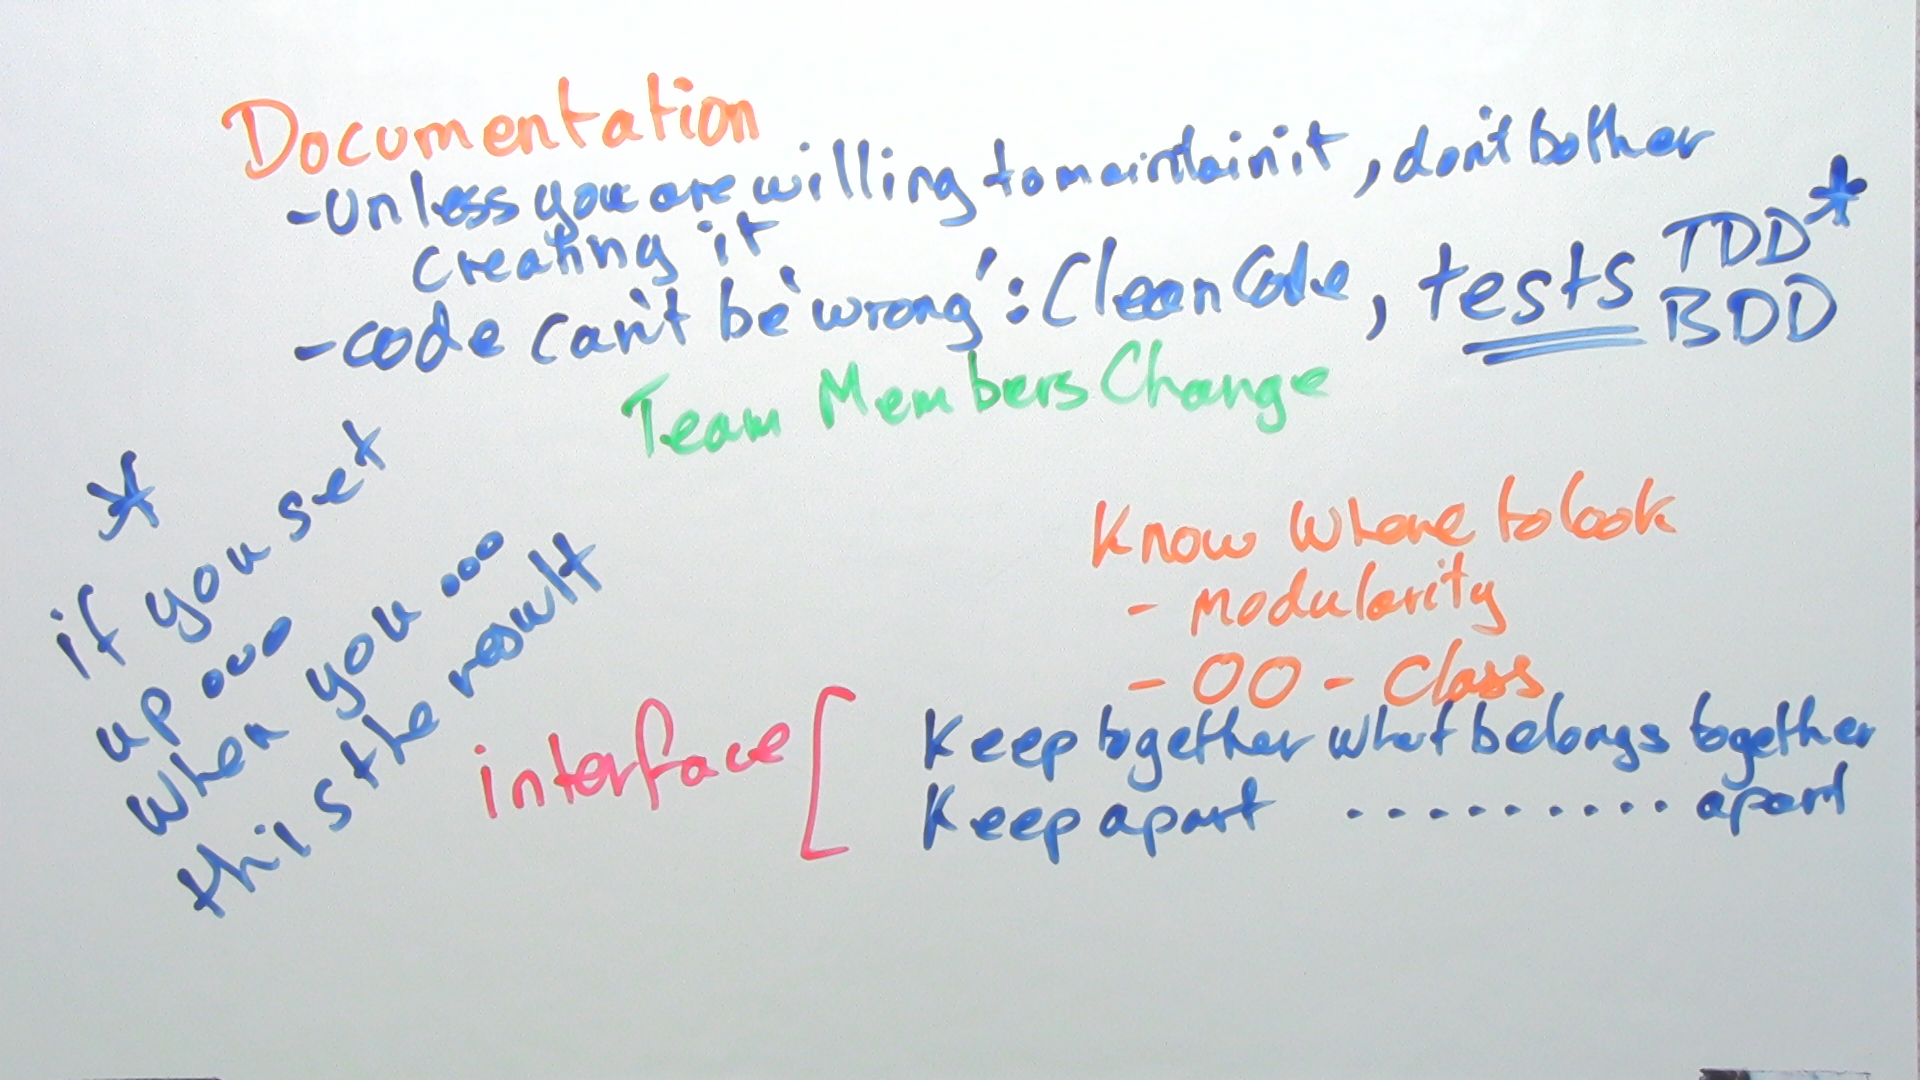 Documentation
- Unless you are willing to maintain it, don't bother
creating it
- code can't be 'wrong': Clean Code, tests TDD*
BDD
Team Members Change
*
if you set
up ...
when you ...
this is the result
Know where to look
- modularity
- OO - Class
interface [
Keep together what belongs together
Keep apart .......... apart